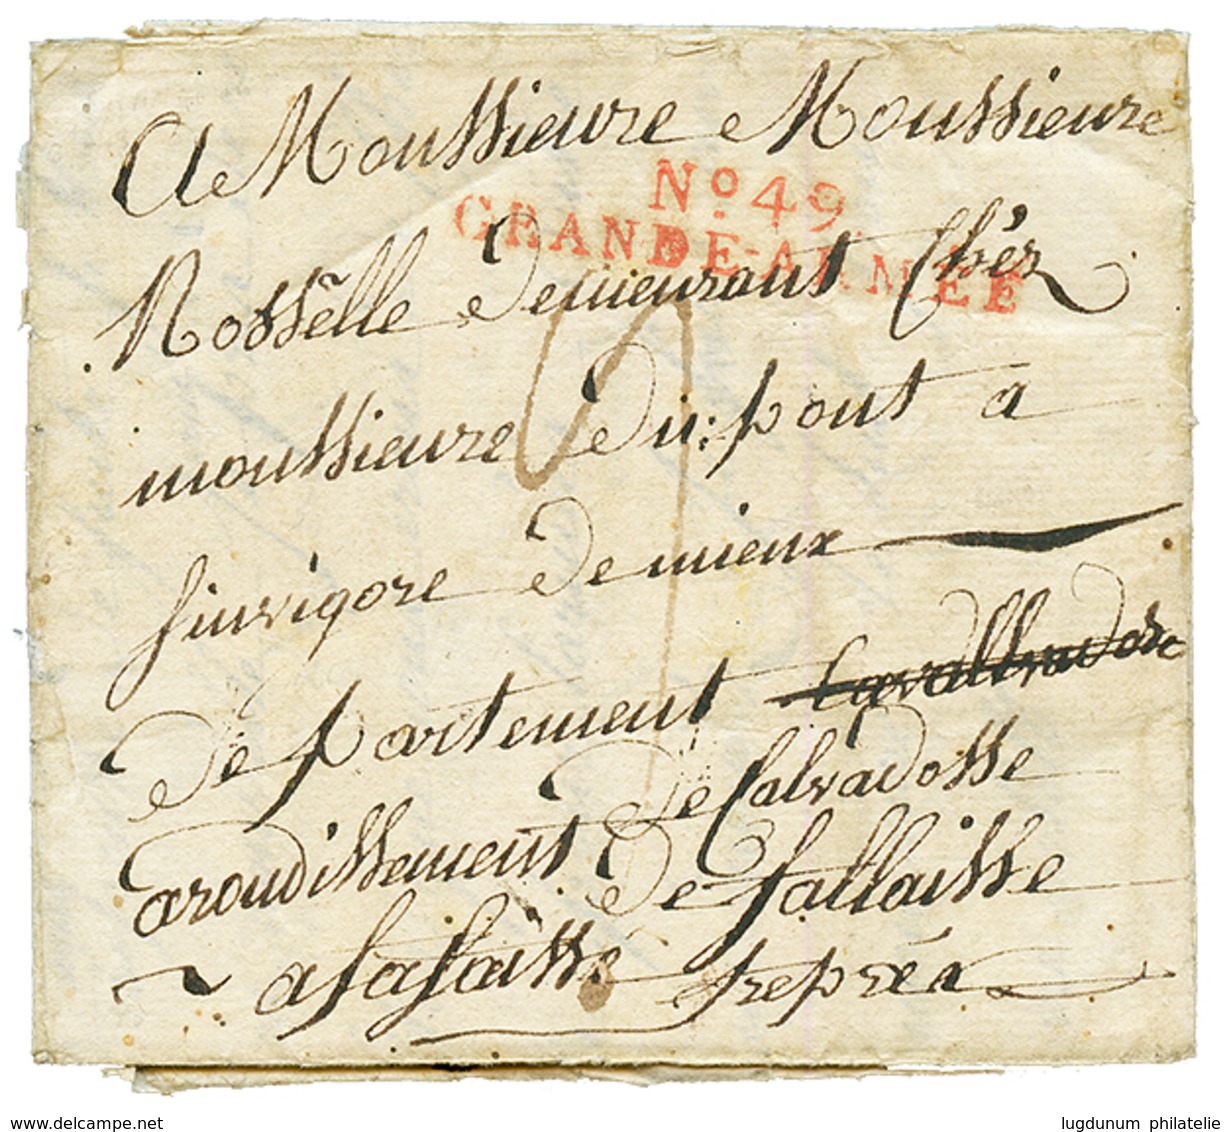 A Moussieure Moussieure
No. 49.
GRANDE-ARMÉE
Rossëlle Demeurant Chéz
moussieure du:pont a
finvigore De mieux
De partement
De Calvadosse
arondissement De fallaisse
a fafaisse
www.delcampe.net
lugdunum philatelie